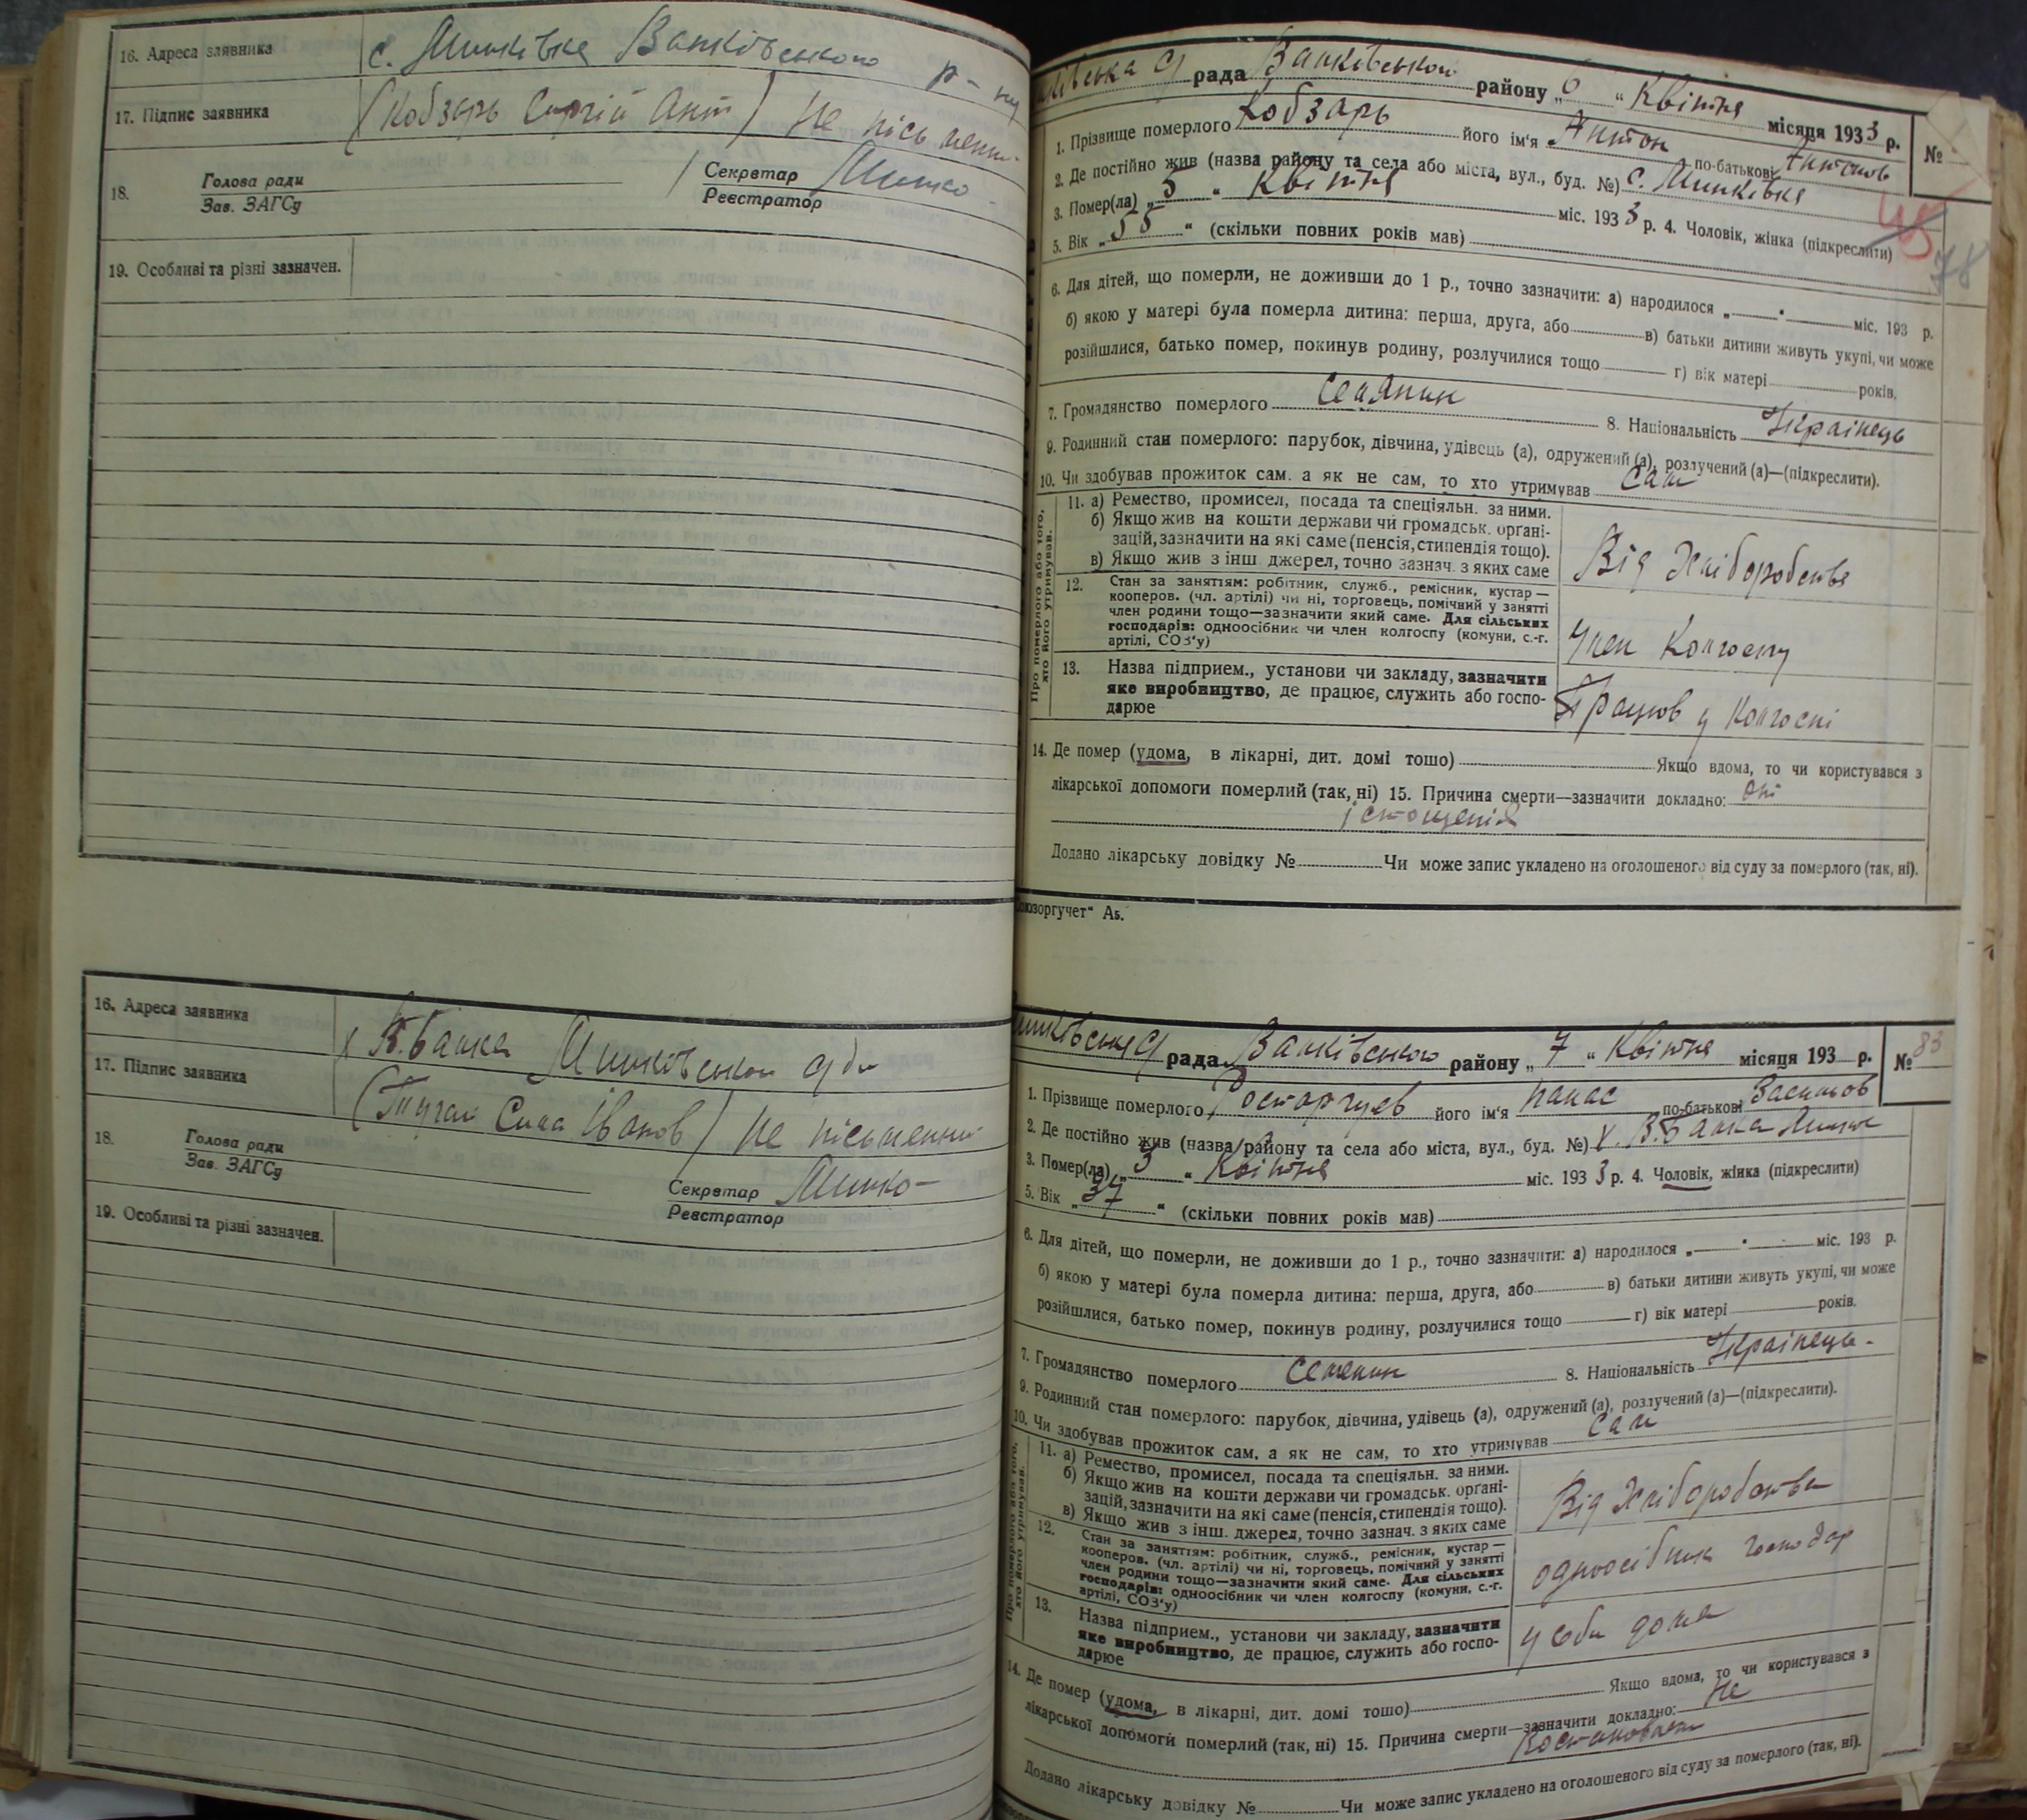 16. Адреса заявника с. Минківка Валківського р-ну
17. Підпис заявника (Кобзарь Сергій Ант) Не письменн.
18. Голова ради
Зав. ЗАГСу
Секретар Минко
Реєстратор
19. Особливі та різні зазначен.
16. Адреса заявника х В.балка Минківської с/ди
17. Підпис заявника ( Сила Іванов) Не письменний
18. Голова ради
Зав. ЗАГСу
Секретар Минко
Реєстратор
19. Особливі та різні зазначен.
рада Валківського району „6 “ Квітня місяця 1933 р. №
1. Прізвище померлого Кобзарь його ім'я Антон по-батькові Антонов
2. Де постійно жив (назва району та села або міста, вул., буд. №) с. Минківка
3. Помер(ла) „5 “ Квітня міс. 1933 р. 4. Чоловік, жінка (підкреслити)
45
78
5. Вік „55 “ (скільки повних років мав)
6. Для дітей, що померли, не доживши до 1 р., точно зазначити: а) народилося „ “ міс. 193 р.
б) якою у матері була померла дитина: перша, друга, або в) батьки дитини живуть укупі, чи може
розійшлися, батько помер, покинув родину, розлучилися тощо г) вік матері років.
7. Громадянство померлого Селянин 8. Національність Українець
9. Родинний стан померлого: парубок, дівчина, удівець (а), одружений (а), розлучений (а)—(підкреслити).
10. Чи здобував прожиток сам, а як не сам, то хто утримував сам
Про померлого або того,
хто його утримував.
11. а) Ремество, промисел, посада та спеціяльн. за ними.
б) Якщо жив на кошти держави чи громадськ. органі-
зацій, зазначити на які саме (пенсія, стипендія тощо).
в) Якщо жив з інш. джерел, точно зазнач. з яких саме
Від Хліборобства
12. Стан за заняттям: робітник, служб., ремісник, кустар —
кооперов. (чл. артілі) чи ні, торговець, помічний у занятті
член родини тощо—зазначити який саме. Для сільських
господарів: одноосібник чи член колгоспу (комуни, с.-г.
артілі, СОЗ'у)
Член Колгоспу
13. Назва підприєм., установи чи закладу, зазначити
яке виробництво, де працює, служить або госпо-
дарює
Працюв у Колгоспі
14. Де помер (удома, в лікарні, дит. домі тошо) Якщо вдома, то чи користувався з
лікарської допомоги померлий (так, ні) 15. Причина смерти—зазначити докладно: от
істощенія
Додано лікарську довідку № Чи може запис укладено на оголошеного від суду за померлого (так, ні).
оюзоргучет“ А5.
рада Валківського району „7 “ Квітня місяця 193 р. № 83
1. Прізвище померлого Росторгуєв його ім'я Панас по-батькові
2. Де постійно жив (назва району та села або міста, вул., буд. №) х. В.Балка
3. Помер(ла) „3 “ Квітня міс. 1933 р. 4. Чоловік, жінка (підкреслити)
5. Вік „37 “ (скільки повних років мав)
6. Для дітей, що померли, не доживши до 1 р., точно зазначити: а) народилося „ “ міс. 193 р.
б) якою у матері була померла дитина: перша, друга, або в) батьки дитини живуть укупі, чи може
розійшлися, батько помер, покинув родину, розлучилися тощо г) вік матері років.
7. Громадянство померлого Селянин 8. Національність Українець
9. Родинний стан померлого: парубок, дівчина, удівець (а), одружений (а), розлучений (а)—(підкреслити).
10. Чи здобував прожиток сам, а як не сам, то хто утримував сам
Про померлого або того,
хто його утримував.
11. а) Ремество, промисел, посада та спеціяльн. за ними.
б) Якщо жив на кошти держави чи громадськ. органі-
зацій, зазначити на які саме (пенсія, стипендія тощо).
в) Якщо жив з інш. джерел, точно зазнач. з яких саме
Від Хліборобства
12. Стан за заняттям: робітник, служб., ремісник, кустар —
кооперов. (чл. артілі) чи ні, торговець, помічний у занятті
член родини тощо—зазначити який саме. Для сільських
господарів: одноосібник чи член колгоспу (комуни, с.-г.
артілі, СОЗ'у)
одноосібник господар
13. Назва підприєм., установи чи закладу, зазначити
яке виробництво, де працює, служить або госпо-
дарює
у себи дома
14. Де помер (удома, в лікарні, дит. домі тошо) Якщо вдома, то чи користувався з
лікарської допомоги померлий (так, ні) 15. Причина смерти—зазначити докладно: Не
Додано лікарську довідку № Чи може запис укладено на оголошеного від суду за померлого (так, ні).